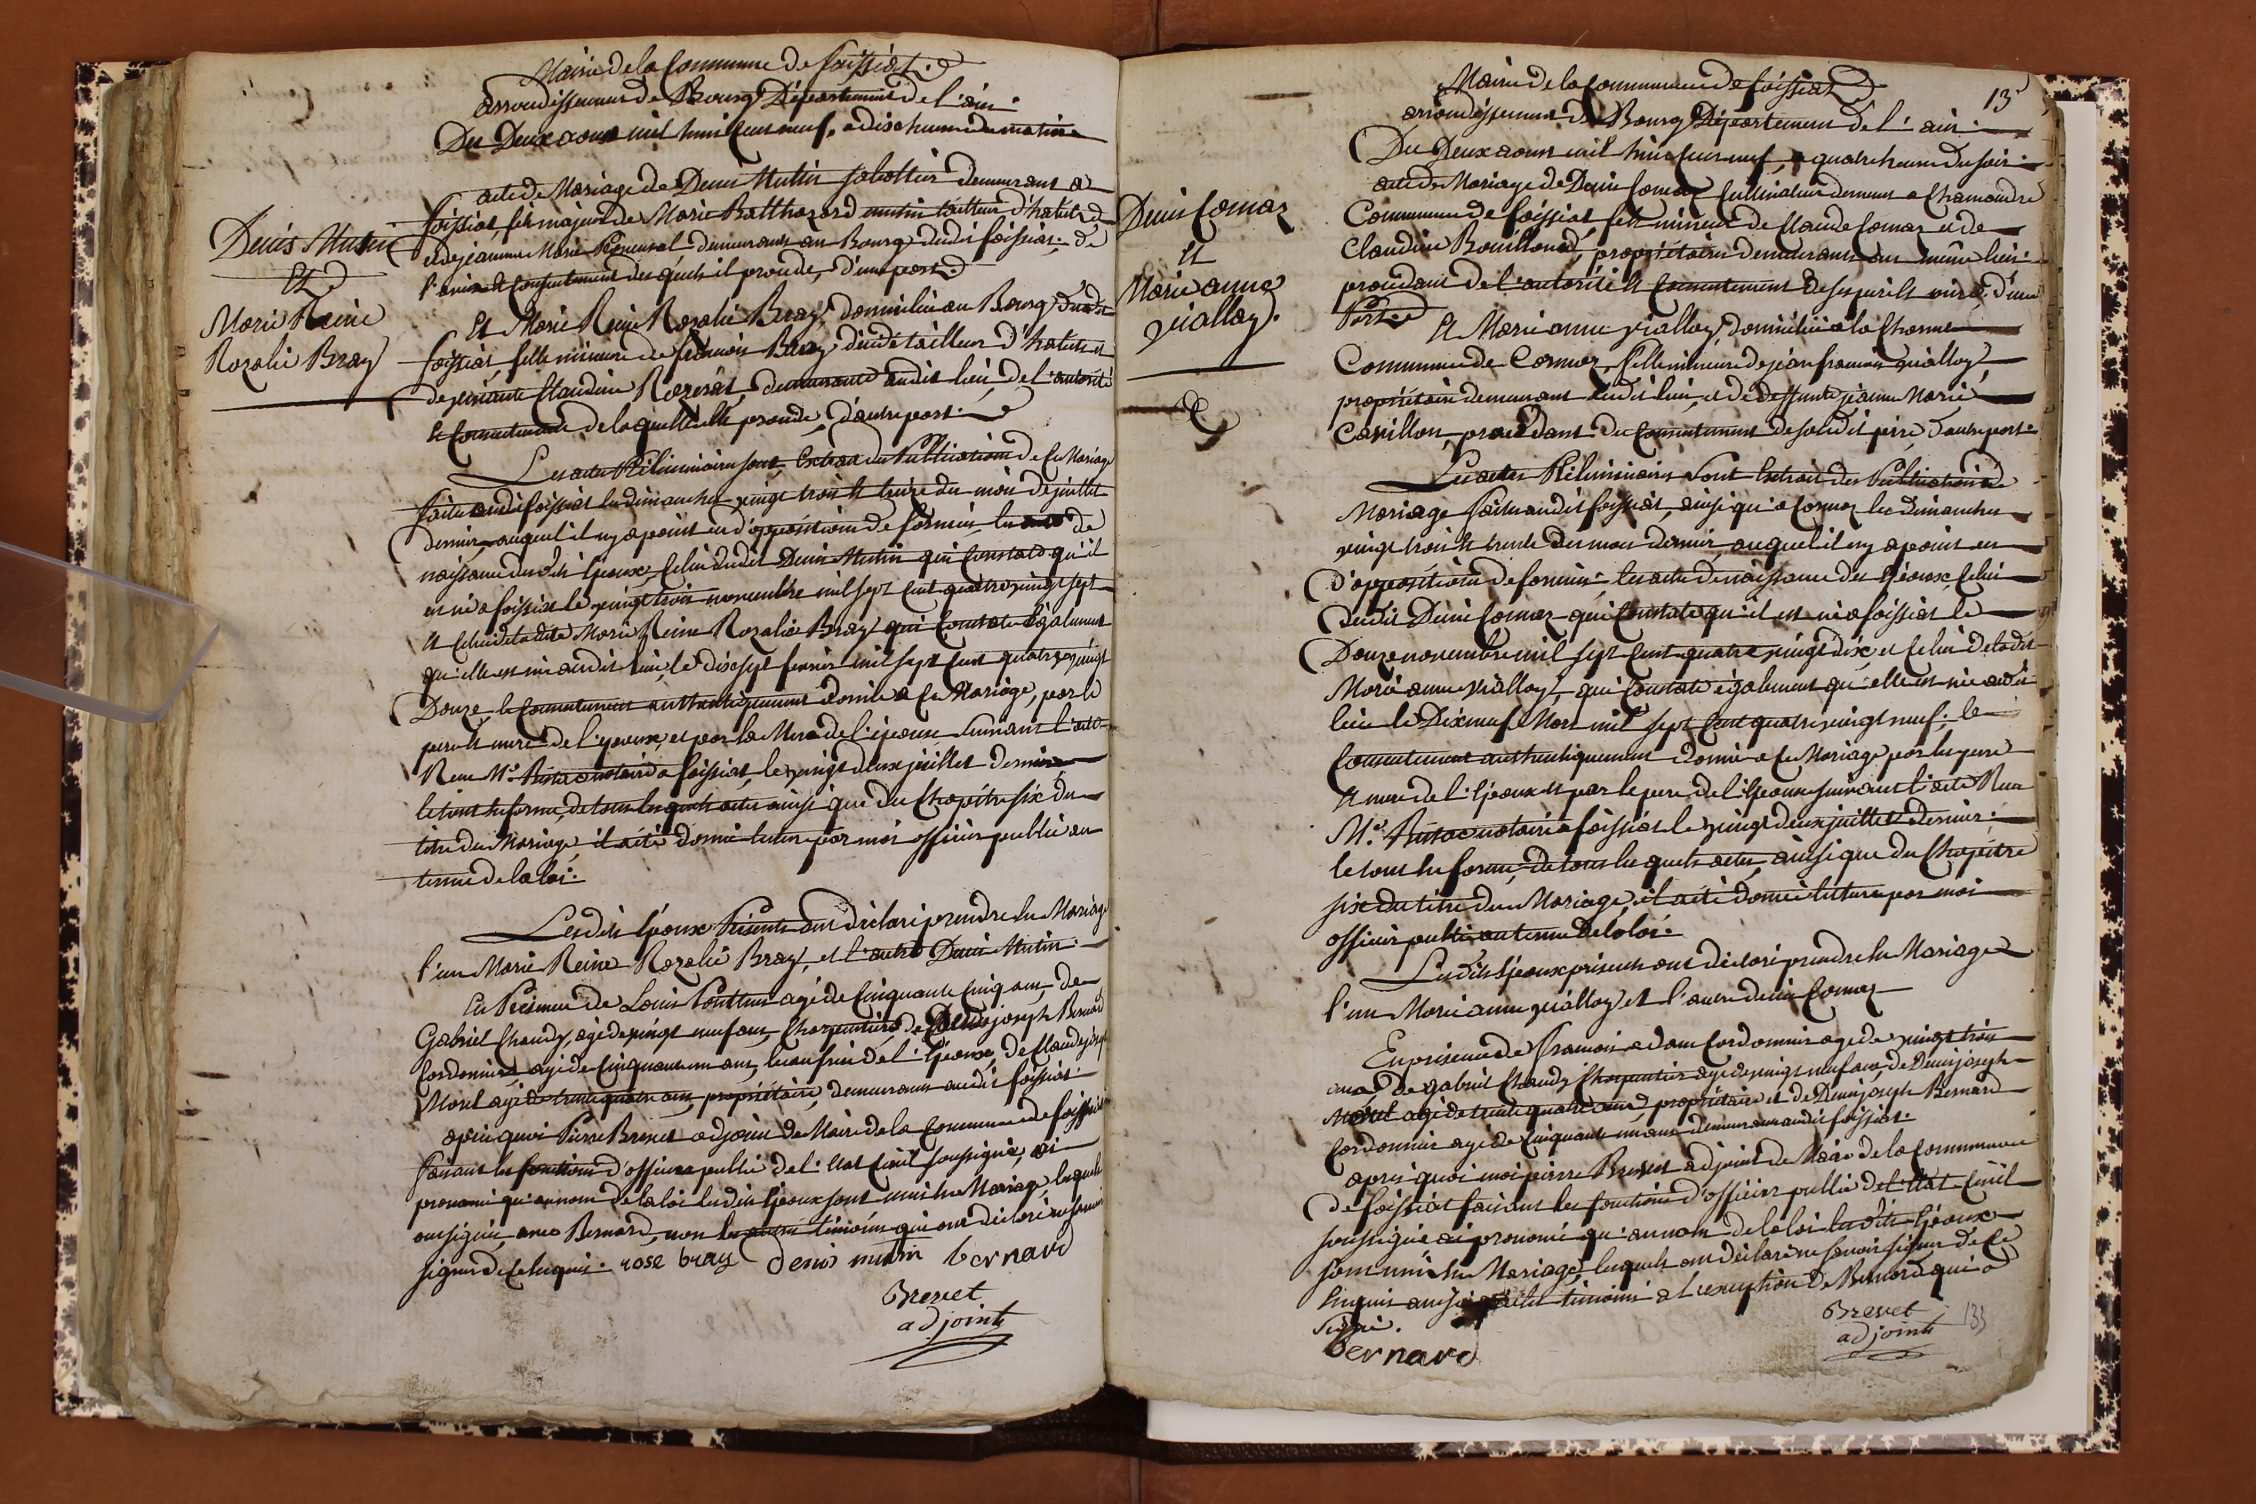 Mairie de la Commune de foissiat
arrondissement de Bourg Département de l'ain
Du Deux aout mil huit Cent neuf, a dix heures du matin
acte de Mariage de Denis Mutin sabottier demeurant a
foissiat, fils majeur de Marie Balthazard mutin tailleur d'habits
et de jeanne Marie demeurants au Bourg dudit foissiat, de
l'avis et Consentement desquels il procede, d'une part
Denis Mutin
Et
Marie Reine
Rozalie Bray
Et Marie Reine Rozalie Bray, domiciliée au Bourg dudit
foissiat, fille mineure de françois Bray, tailleur d'habits et
de vivante Claudine demeurante audit lieu, de l'autorité
et Consentement de laquelle elle procede, d'autre part
Les actes Préliminaires sont, Extrait des Publications de Ce Mariage
faites audit foissiat les dimanches vingt trois et trente du mois de juillet
dernier, auquel il ny a point eu d'opposition de formée, les actes de
naissance desdits Epoux, Celui dudit Denis Mutin qui Constate qu'il
est né a foissiat le vingt trois novembre mil sept Cent quatre vingt sept
et Celui de la dite Marie Reine Rozalie Bray qui Constate également
qu'elle est née audit lieu, le dix sept fevrier mil sept Cent quatre vingt
Douze, le Consentement authentiquement donné a Ce Mariage, par le
pere et mere de l'epoux, et par la Mere de l'épouse suivant l'acte
Reçu Me. notaire a foissiat, le vingt deux juillet dernier
le tout en forme, de tous lesquels actes ainsi que du Chapitre six du
titre du Mariage, il a été donné lecture par moi officier public au
terme de la loi.
Lesdits Epoux Présents ont déclaré prendre En Mariage
l'un Marie Reine Rozalie Bray, et l'autre Denis Mutin
En Présence de Louis agé de Cinquante Cinq ans, de
Gabriel Chaudy, agé de vingt neuf ans, Charpentier, de Denis joseph Bernard
Cordonnier, agé de Cinquante un ans, de l'Epouse, de Claude joseph
Morel agé de trente quatre ans, propriétaire, demeurants audit foissiat
après quoi Pierre Brevet adjoint de Maire de la Commune de foissiat
faisant les fonctions d'officier public de l'Etat Civil soussigné, ai
prononcé qu'au nom de la loi lesdits Epoux sont unis En Mariage, lesquels
ont signé, avec Bernard, non les autres témoins qui ont déclaré ne savoir
signer de Ce Enquis. rose bray denis mutin bernard
Brevet
adjoint
13
Mairie de la Commune de foissiat
arrondissement de Bourg Département de l'ain
Du Deux aout mil huit Cent neuf, a quatre heures du soir
acte de Mariage de Denis Comaz Cultivateur demeurant a Chamandre
Commune de foissiat fils mineur de Claude Comaz et de
Claudine Bouilloud, propriétaires demeurants au même lieu
procedant de l'autorité et Consentement de ses pere et mere d'une
Part
Denis Comaz
Et
Marie anne
vialloy.
Et Marie anne vialloy, domiciliée a la Charme
Commune de Cormoz, fille mineure de jean françois vialloy,
propriétaire demeurant audit lieu, et de deffunte jeanne Marie
Cavillon, procedant du Consentement de sondit pere d'autre part
Les actes Préliminaires sont Extrait des Publications de
Mariage faites audit foissiat, ainsi qu'a Cormoz les Dimanches
vingt trois et trente du mois dernier, auquel il ny a point eu
d'opposition de formée. les actes de naissance des Epoux, Celui
dudit Denis Comaz qui Constate qu'il est né a foissiat le
Douze novembre mil sept Cent quatre vingt dix, et Celui de ladite
Marie anne vialloy, qui Constate également qu'elle est née audit
lieu le Dix neuf Mars mil sept Cent quatre vingt neuf. le
Consentement authentiquement donné a Ce Mariage par les pere
et mere de l'Epoux et par le pere de l'Epouse suivant l'acte Reçu
Me. notaire a foissiat le vingt deux juillet dernier
le tout En forme, de tous lesquels actes, ainsi que du Chapitre
six du titre du Mariage, il a été donné lecture par moi
officier public au terme de la loi.
Lesdits Epoux présents ont déclaré prendre En Mariage
l'un Marie anne vialloy et l'autre denis Comaz
En présence de françois adam Cordonnier agé de vingt trois
ans, de gabriel Chaudy Charpentier agé de vingt neuf ans, de Denis joseph
Morel agé de trente quatre ans propriétaire et de Denis joseph Bernard
Cordonnier agé de Cinquante un ans demeurants audit foissiat.
après quoi moi pierre Brevet adjoint de Maire de la Commune
de foissiat faisant les fonctions d'officier public de l'Etat Civil
soussigné ai prononcé qu'au nom de la loi lesdits Epoux
sont unis En Mariage, lesquels ont déclaré ne savoir signer de Ce
Enquis ainsi que les témoins a l'exception de Bernard qui a
signé.
bernard
Brevet
adjoint
133